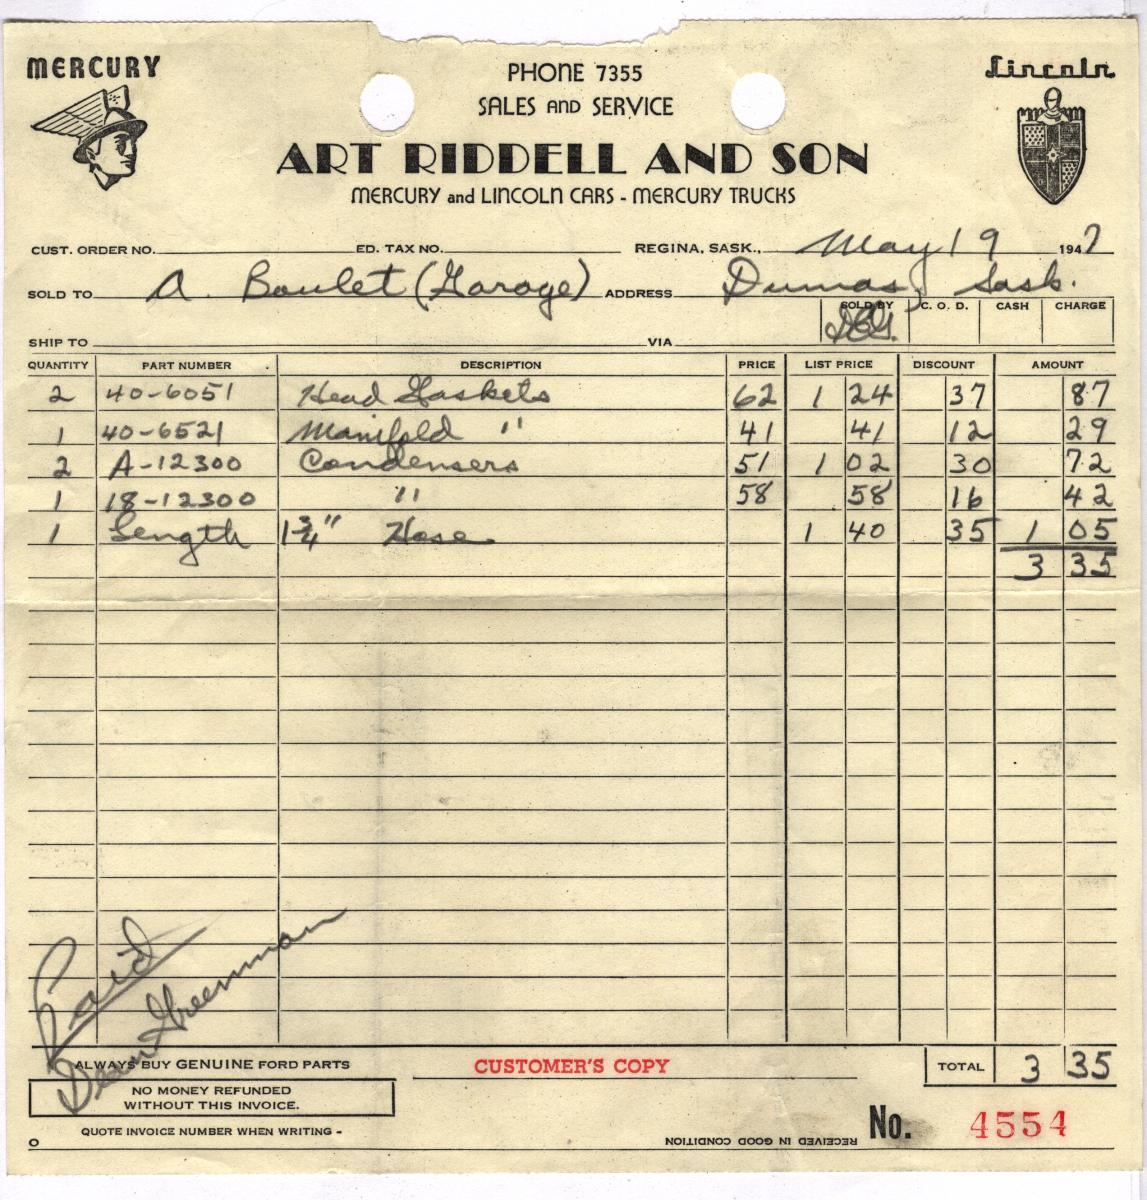 MERCURY
Lincoln
PHONE 7355
SALES AND SERVICE
ART RIDDELL AND SON
MERCURY and LINCOLN CARS - MERCURY TRUCKS
CUST. ORDER NO. ED. TAX NO. REGINA, SASK., May 19 1947
SOLD TO A. Boulet (Garage) ADDRESS Dumas, Sask.
SOLD BY C. O. D. CASH CHARGE
SHIP TO VIA
QUANTITY PART NUMBER DESCRIPTION PRICE LIST PRICE DISCOUNT AMOUNT
2 40-6051 Head Gaskets 62 1 24 37 87
1 40-6521 Manifold " 41 41 12 29
2 A-12300 Condensers 51 1 02 30 72
1 18-12300 " 58 58 16 42
1 Length 1 3/4" Hose 1 40 35 1 05
3 35
Paid
Dean Greenman
ALWAYS BUY GENUINE FORD PARTS
CUSTOMER'S COPY
TOTAL 3 35
NO MONEY REFUNDED
WITHOUT THIS INVOICE.
QUOTE INVOICE NUMBER WHEN WRITING -
RECEIVED IN GOOD CONDITION
No. 4554